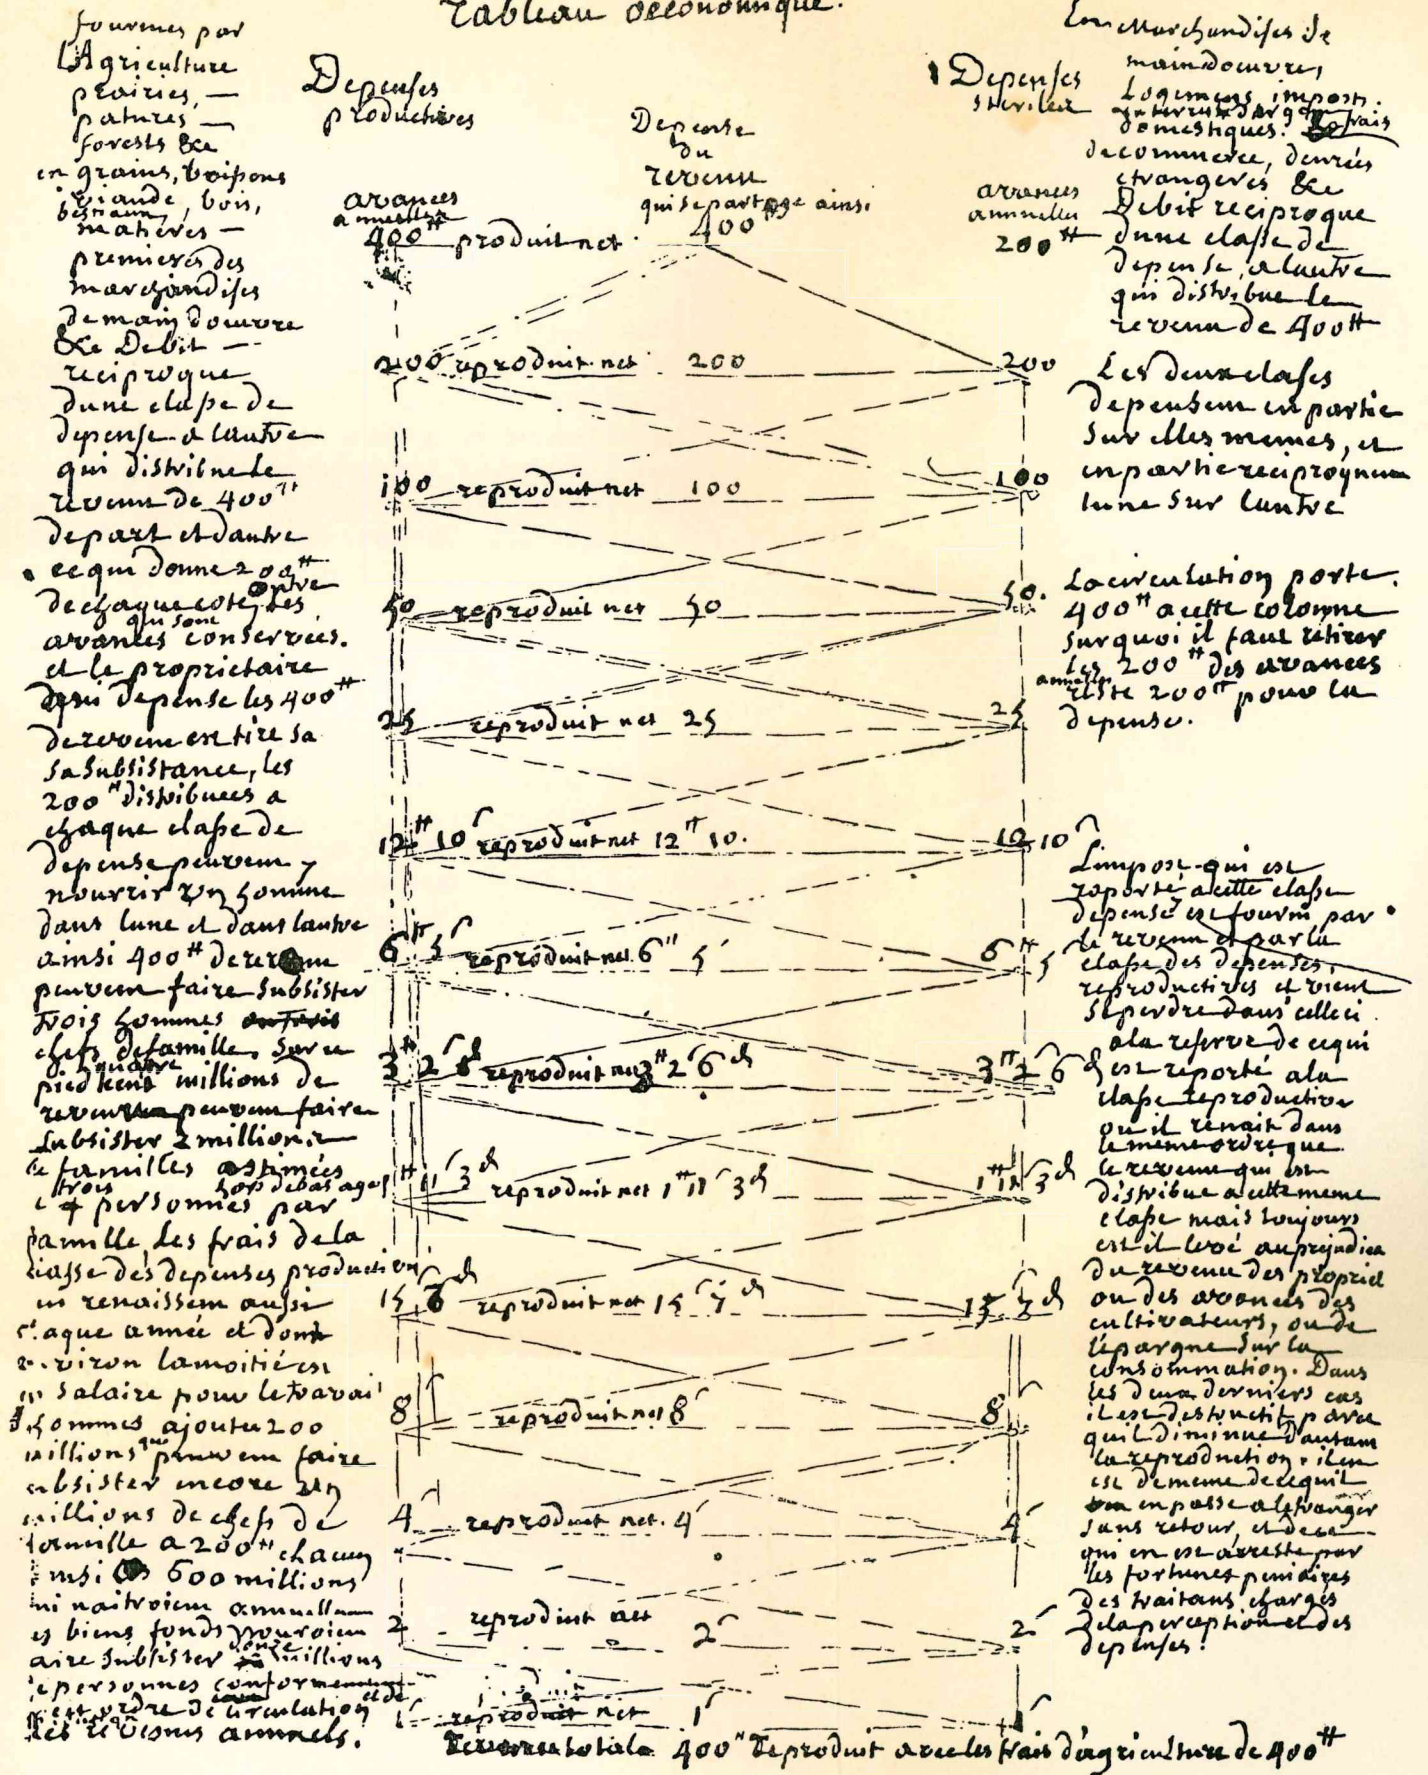 Tableau oeconomique.
fournies par
l'Agriculture
prairies, —
patures —
forests &c
en grains, boissons
viande, bois,
bestiaux,
matieres —
premieres des
marchandises
de main doeuvre
&c Debit —
reciproque
dune classe de
depense a lautre
qui distribue le
revenu de 400ᵗᵗ
depart et dautre
ce qui donne 200ᵗᵗ
de chaque coté, outre les
avances qui sont conservées.
et le proprietaire
qui depense les 400ᵗᵗ
de revenu en tire sa
sa subsistance, les
200ᵗᵗ distribuees a
chaque classe de
depense peuvent y
nourrir un homme
dans lune et dans lautre
ainsi 400ᵗᵗ de revenu
peuvent faire subsister
trois hommes
chefs de famille, sur ce
pied quatre millions de
revenu peuvent faire
subsister 2 millions
de familles estimées
a trois personnes hors de bas age par
famille, Les frais de la
classe des depenses productives
renaissent aussi
chaque année et dont
environ la moitié est
en salaire pour le travail
hommes ajoute 200
millions qui peuvent faire
subsister encore un
millions de chefs de
famille a 200ᵗᵗ chacun
ainsi 600 millions
qui naitroient annuellem
es biens fonds pouroient
faire subsister douze millions
de personnes conformement
a cet ordre de circulation et de
des revenus annuels.
Depenses
productives
avances
annuelles
400ᵗᵗ produit net
Depense
du
revenu
qui se partage ainsi
400ᵗᵗ
Depenses
steriles
avances
annuelles
200ᵗᵗ
200 reproduit net 200 200
100 reproduit net 100 100
50 reproduit net 50 50.
25 reproduit net 25 25
12ᵗᵗ 10ˢ reproduit net 12ᵗᵗ 10. 12 10ˢ
6ᵗᵗ 5ˢ reproduit net 6ᵗᵗ 5ˢ 6ᵗᵗ 5
3ᵗᵗ 2ˢ 6ᵈ reproduit net 3ᵗᵗ 2ˢ 6ᵈ 3ᵗᵗ 2ˢ 6ᵈ
1ᵗᵗ 11ˢ 3ᵈ reproduit net 1ᵗᵗ 11ˢ 3ᵈ 1ᵗᵗ 11ˢ 3ᵈ
15ˢ 6ᵈ reproduit net 15ˢ 7ᵈ 15ˢ 7ᵈ
8ˢ reproduit net 8ˢ 8ˢ
4ˢ reproduit net. 4ˢ 4ˢ
2ˢ reproduit net 2ˢ 2ˢ
1ˢ reproduit net 1ˢ 1ˢ
totale 400ᵗᵗ Reproduit avec les frais dagriculture de 400ᵗᵗ
En Marchandises de
main doeuvre,
Logemens, impost.
interrest dargent
domestiques. frais
de commerce, denrées
etrangeres &c
Debit reciproque
dune classe de
depense, a lautre
qui distribue le
revenu de 400ᵗᵗ
Les deux classes
depensent en partie
sur elles memes, et
en partie reciproquem
lune sur lautre
La circulation porte.
400ᵗᵗ a cette colonne
sur quoi il faut retirer
les 200ᵗᵗ des avances
annuelles reste 200ᵗᵗ pour la
depense.
L'impost qui est
raporté a cette classe
depense est fourni par
le revenu et par la
classe des depenses,
reproductives et vient
se perdre dans celle ci
a la reserve de ce qui
est reporté a la
classe reproductive
ou il renait dans
le meme ordre que
le revenu qui est
distribue a cette meme
classe mais toujours
est il levé au prejudice
du revenu des propriet
ou des avances des
cultivateurs, ou de
lepargne sur la
consommation. Dans
les deux derniers cas
il est destructif parce
quil diminue dautant
la reproduction. il en
est de meme de ce quil
en passe a letranger
sans retour, et de ce
qui en est arresté par
les fortunes pecuniaires
des traitans chargés
de la perception et des
depenses.